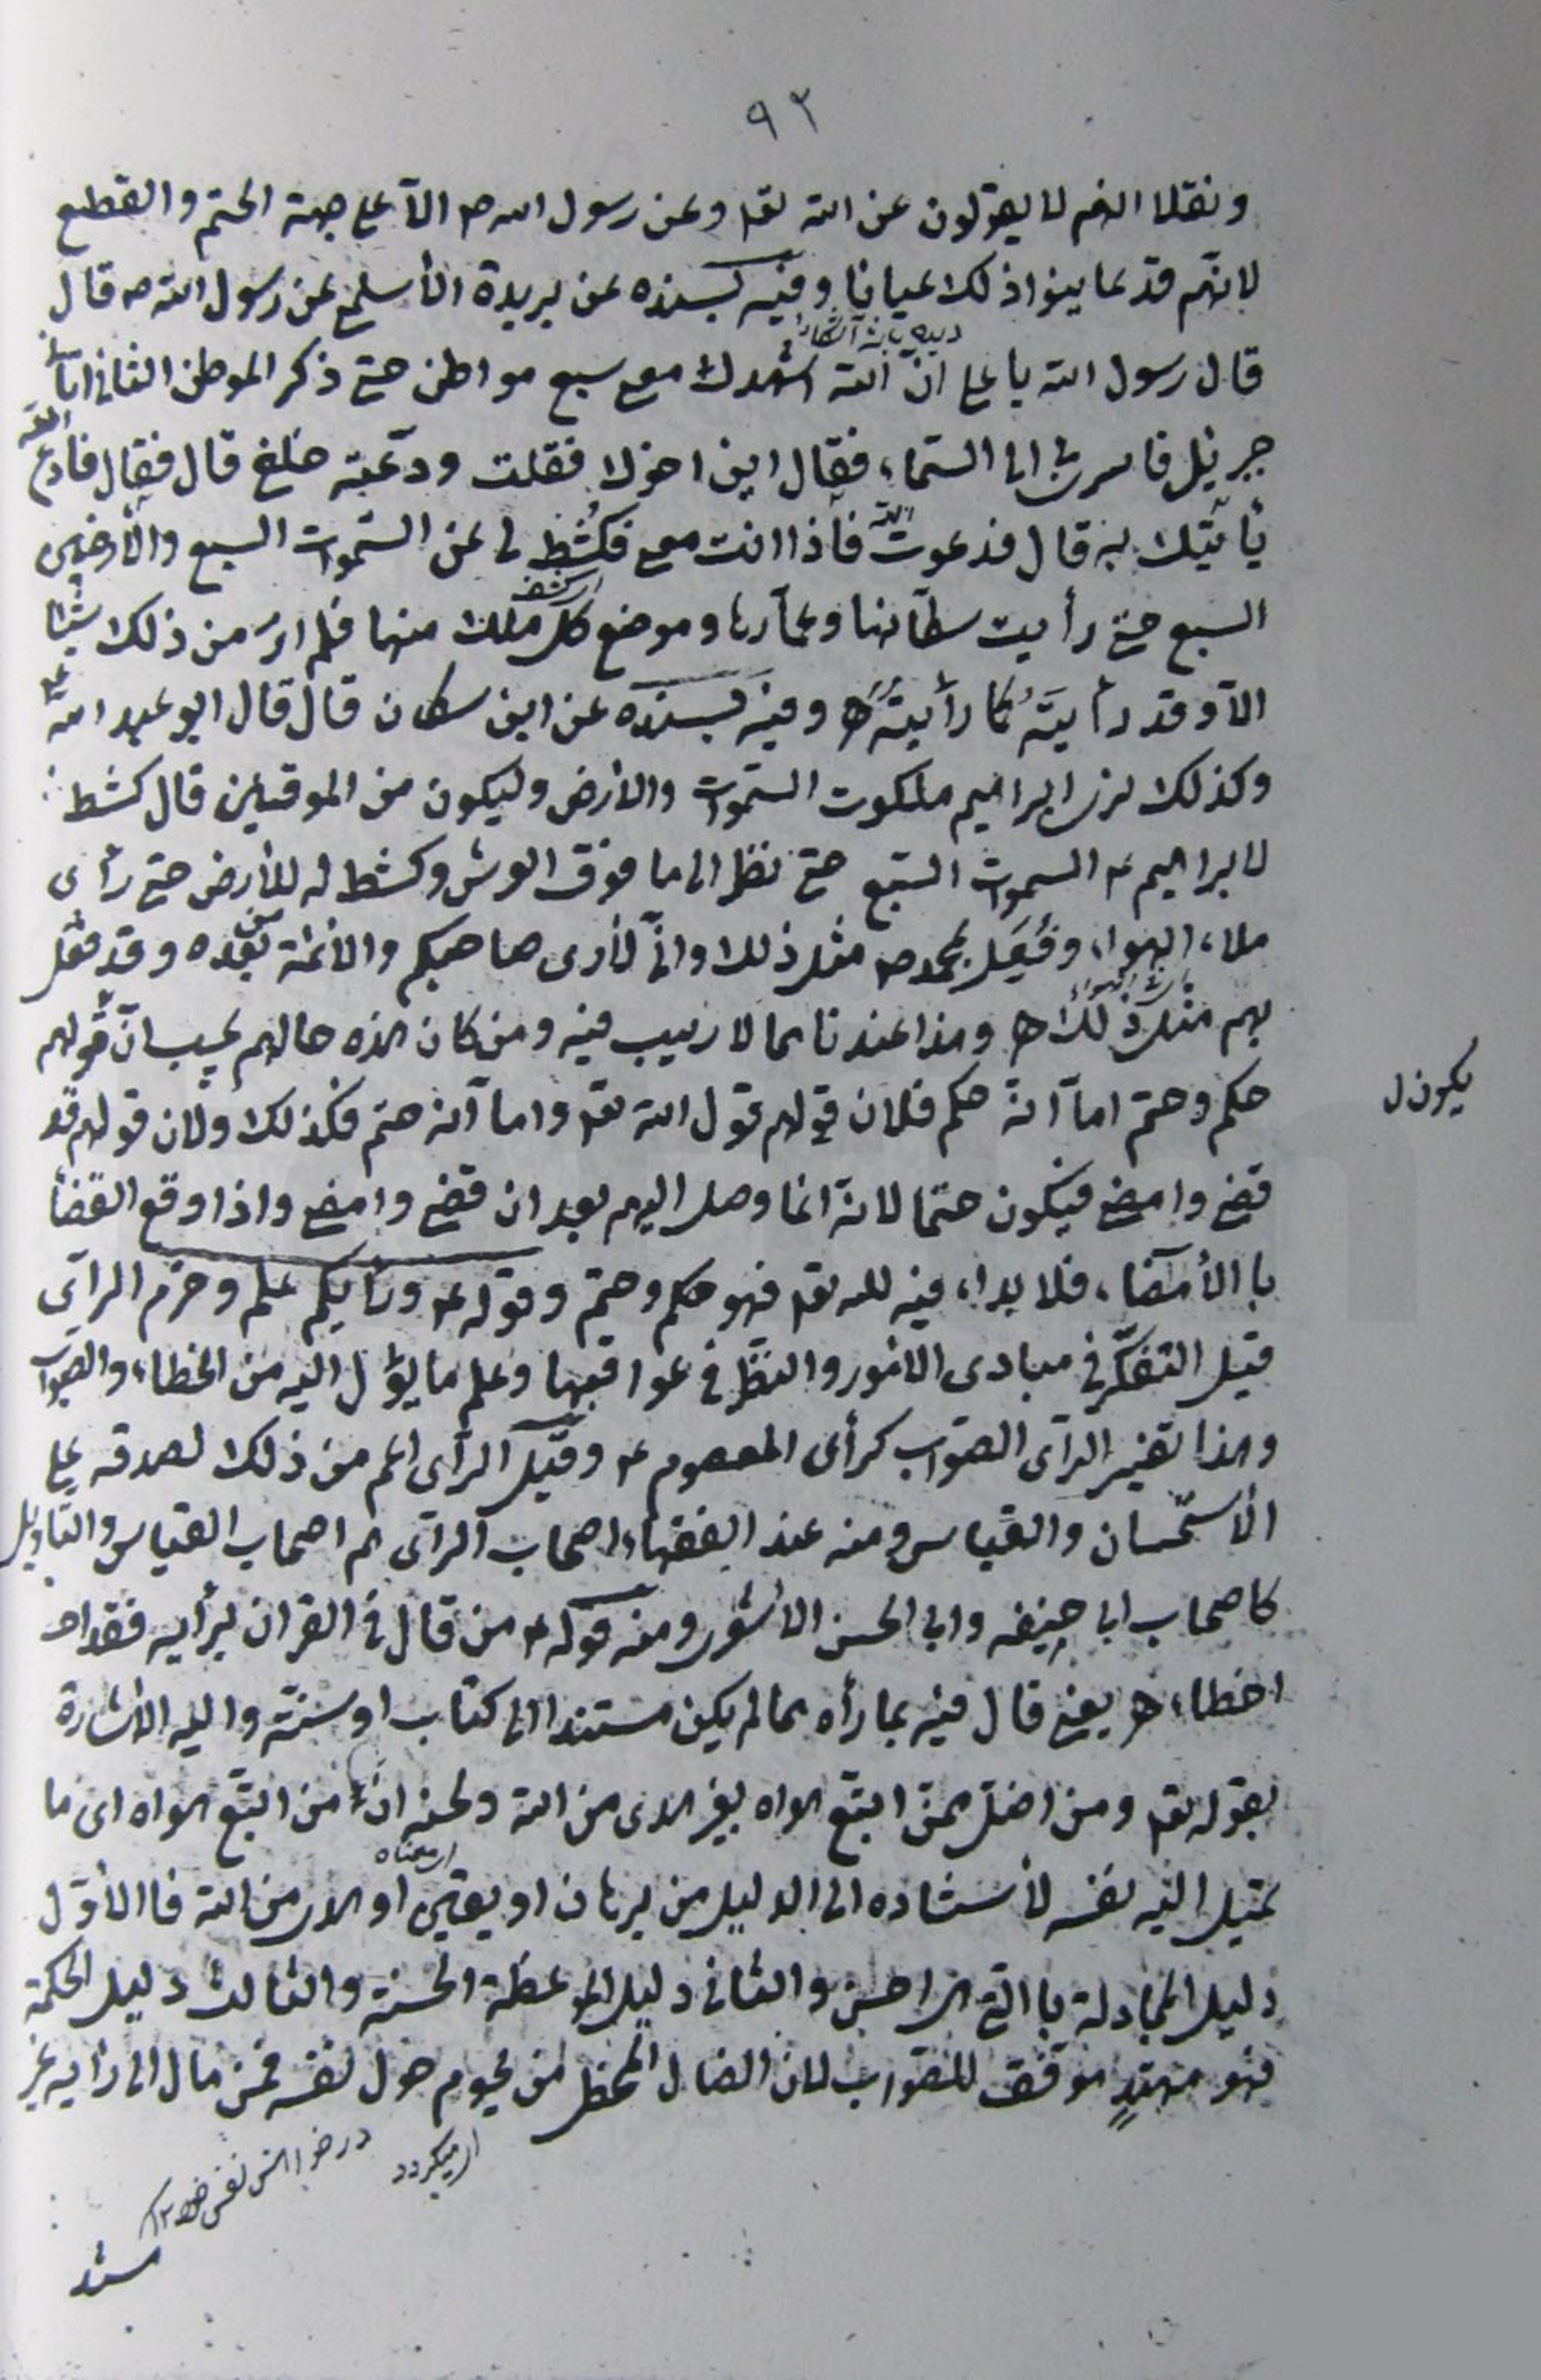 ٩٢
ونقلا انهم لا يقولون عن الله تعا وعن رسول الله ص الآ على جهة الحتم والقطع
لانهم قد عاينوا ذلك عيانا وفيه بسنده عن بريدة الأسلمي عن رسول الله ص قال
قال رسول الله يا علي انّ الله اشهدك معي سبع مواطن حتى ذكر الموطن الثاني اتاني
جبرئيل فاسرى بي الى السّماء فقال اين اخوك فقلت ودّعته خلفي قال فقال فادع الله
يأتيك به قال فدعوت الله فأذا انت معي فكُشط لي عن السّموات السبع والأرضين
السبع حتى رأيت سكّانها وعمّارها وموضع كل ملك منها فلم ار من ذلك شيئا
الاّ وقد رأيتَه كما رأيتُه اه وفيه بسنده عن ابن سكان قال قال ابو عبد الله ع
وكذلك نرى ابراهيم ملكوت السّموات والأرض وليكون من الموقنين قال كشط
لابراهيم ع السموات السّبع حتى نظر الى ما فوق العرش وكشط له الأرض حتى رأى
ملاء الهواء وفُعِل بمحمد ص مثل ذلك وانّي لأرى صاحبكم والائمة من بعده وقد فعل
بهم مثل ذلك اه وهذا عندنا مما لا ريب فيه ومن كان هذه حالهم يجب انّ قولهم
يكون ل
حكم وحتم اما انه حكم فلان قولهم قول الله تعا واما انه حتم فكذلك ولان قولهم قد
قضي وامضي فيكون حتما لانه انما وصل اليهم بعد ان قضي وامضي واذا وقع القضأ
با الأمضاء فلا بداء فيه لله تعا فهو حكم وحتم وقوله ع ورأيكم علم وحزم الرأى
قيل التفكّر في مبادى الامور والنظر في عواقبها وعلم ما يؤل اليه من الخطاء والصواب
وهذا تفسير الرأى الصّواب كرأى المعصوم ع وقيل الرأى اعم من ذلك لصدقه على
الأستحسان والقياس ومنه عند الفقهاء اصحاب الرأى هم اصحاب القياس والتأويل
كاصحاب ابى حنيفه وابى الحسن الاشعرى ومنه قوله ع من قال في القرآن برأيه فقد
اخطاء اه يعنى قال فيه بما رأه مما لم يكن مستندا الى كتاب او سنّة واليه الأشارة
بقوله تعا ومن اضل ممن اتبع هواه بغير هدى من الله ولحنه انّ من اتبّع هواه اى ما
تميل اليه نفسه لأستناده الى الدليل من برهان او يقين او هدى من الله فا الأوّل
دليل المجادلة با التي هي احسن والثاني دليل الموعظة الحسنة والثالث دليل الحكمة
فهو مهتدٍ موفّق للصّواب لان الضال المخطى من يحوم حول نفسه فمن مال الى رأيه غير
اى ميكردد
در خواهش نفس خود ١٢